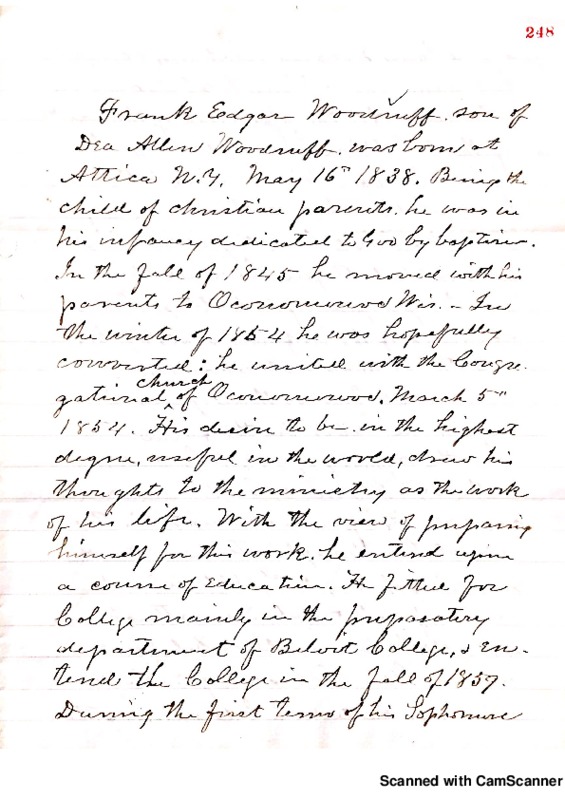 248
Frank Edgar Woodruff, son of
Dea Allen Woodruff, was born at
Attica N.Y. May 16" 1838. Being the
child of christian parents, he was in
his infancy dedicated to God by baptism.
In the fall of 1845 he moved with his
parents to Oconomowoc Wis. - In
the winter of 1854 he was hopefully
converted: he united with the Congre
gational church of Oconomowoc, March 5"
1854. His desire to be in the highest
degree, useful in the world, drew his
thoughts to the ministry as the work
of his life. With the view of preparing
himself for this work, he entered upon
a course of Education. He fitted for
College mainly in the preparatory
department of Beloit College, & en-
tered the College in the fall of 1857.
During the first term of his Sophomore
Scanned with CamScanner